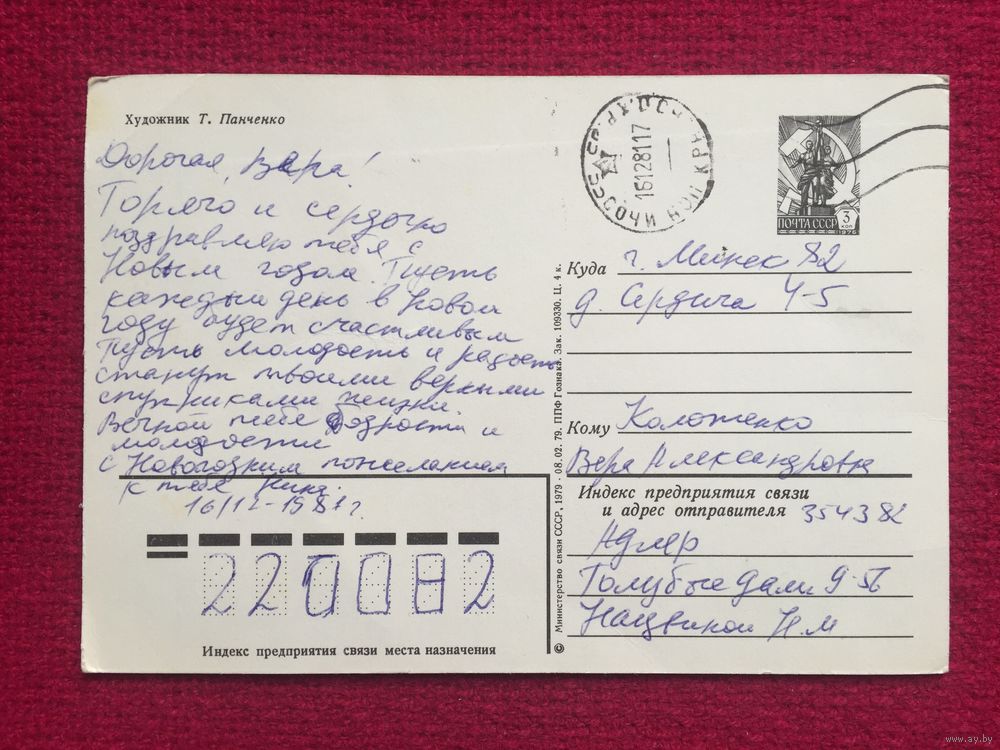 Художник Т. Панченко
Дорогая, Вера!
Горячо и сердечно
поздравляю тебя с
Новым годом. Пусть
каждый день в Новом
году будет счастливым
Пусть молодость и радость
станут твоими верными
спутниками жизни.
Вечной тебе бодрости и
молодости
С Новогодним пожеланием
к тебе Нина.
16/12-1981 г.
220082
Индекс предприятия связи места назначения
© Министерство связи СССР, 1979 - 08. 02. 79. ППФ Гознака. Зак. 109330. Ц. 4 к.
16128117
СОЧИ
ПОЧТА СССР
3
коп
1976
Куда г. Минск 82
д. Сердича 4-5
Кому Коложенко
Вера Александровна
Индекс предприятия связи
и адрес отправителя 354382
Адлер
Голубые дали 9-56
Нацвиной Н.М
www.ay.by